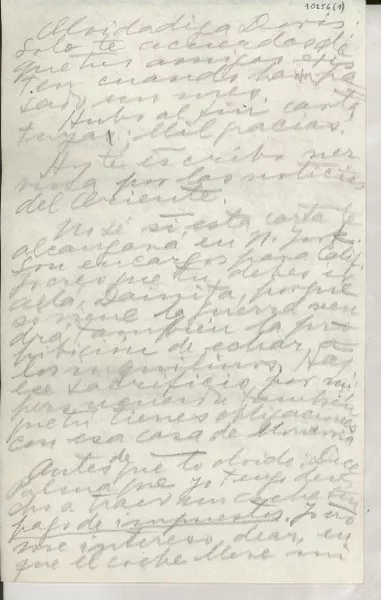 10256(1)
Olvidadiza Doris
Solo te acuerdas de
que tus amigos exis
ten cuando ha pa
sado un mes.
Hubo al fin carta
tuya; Mil gracias.
Hoy te escribo ner
viosa por las noticias
del Oriente.
No sé si esta carta te
alcanzará en N. York.
Son encargos para Calif.
Creo que tu debes ir
allá, Dainita, porque
si viene la guerra ven
drá también la pro
hibición de echar a
los inquilinos. Haz
ese sacrificio por mí
pero recuerda también
que tú tienes obligaciones
con esa casa de Monrovia
Antes de que lo olvide: Dice
Palma que yo tengo dere
cho a traer un coche sin
pago de impuestos. Yo no
me intereso, dear, en
que el coche lleve mi